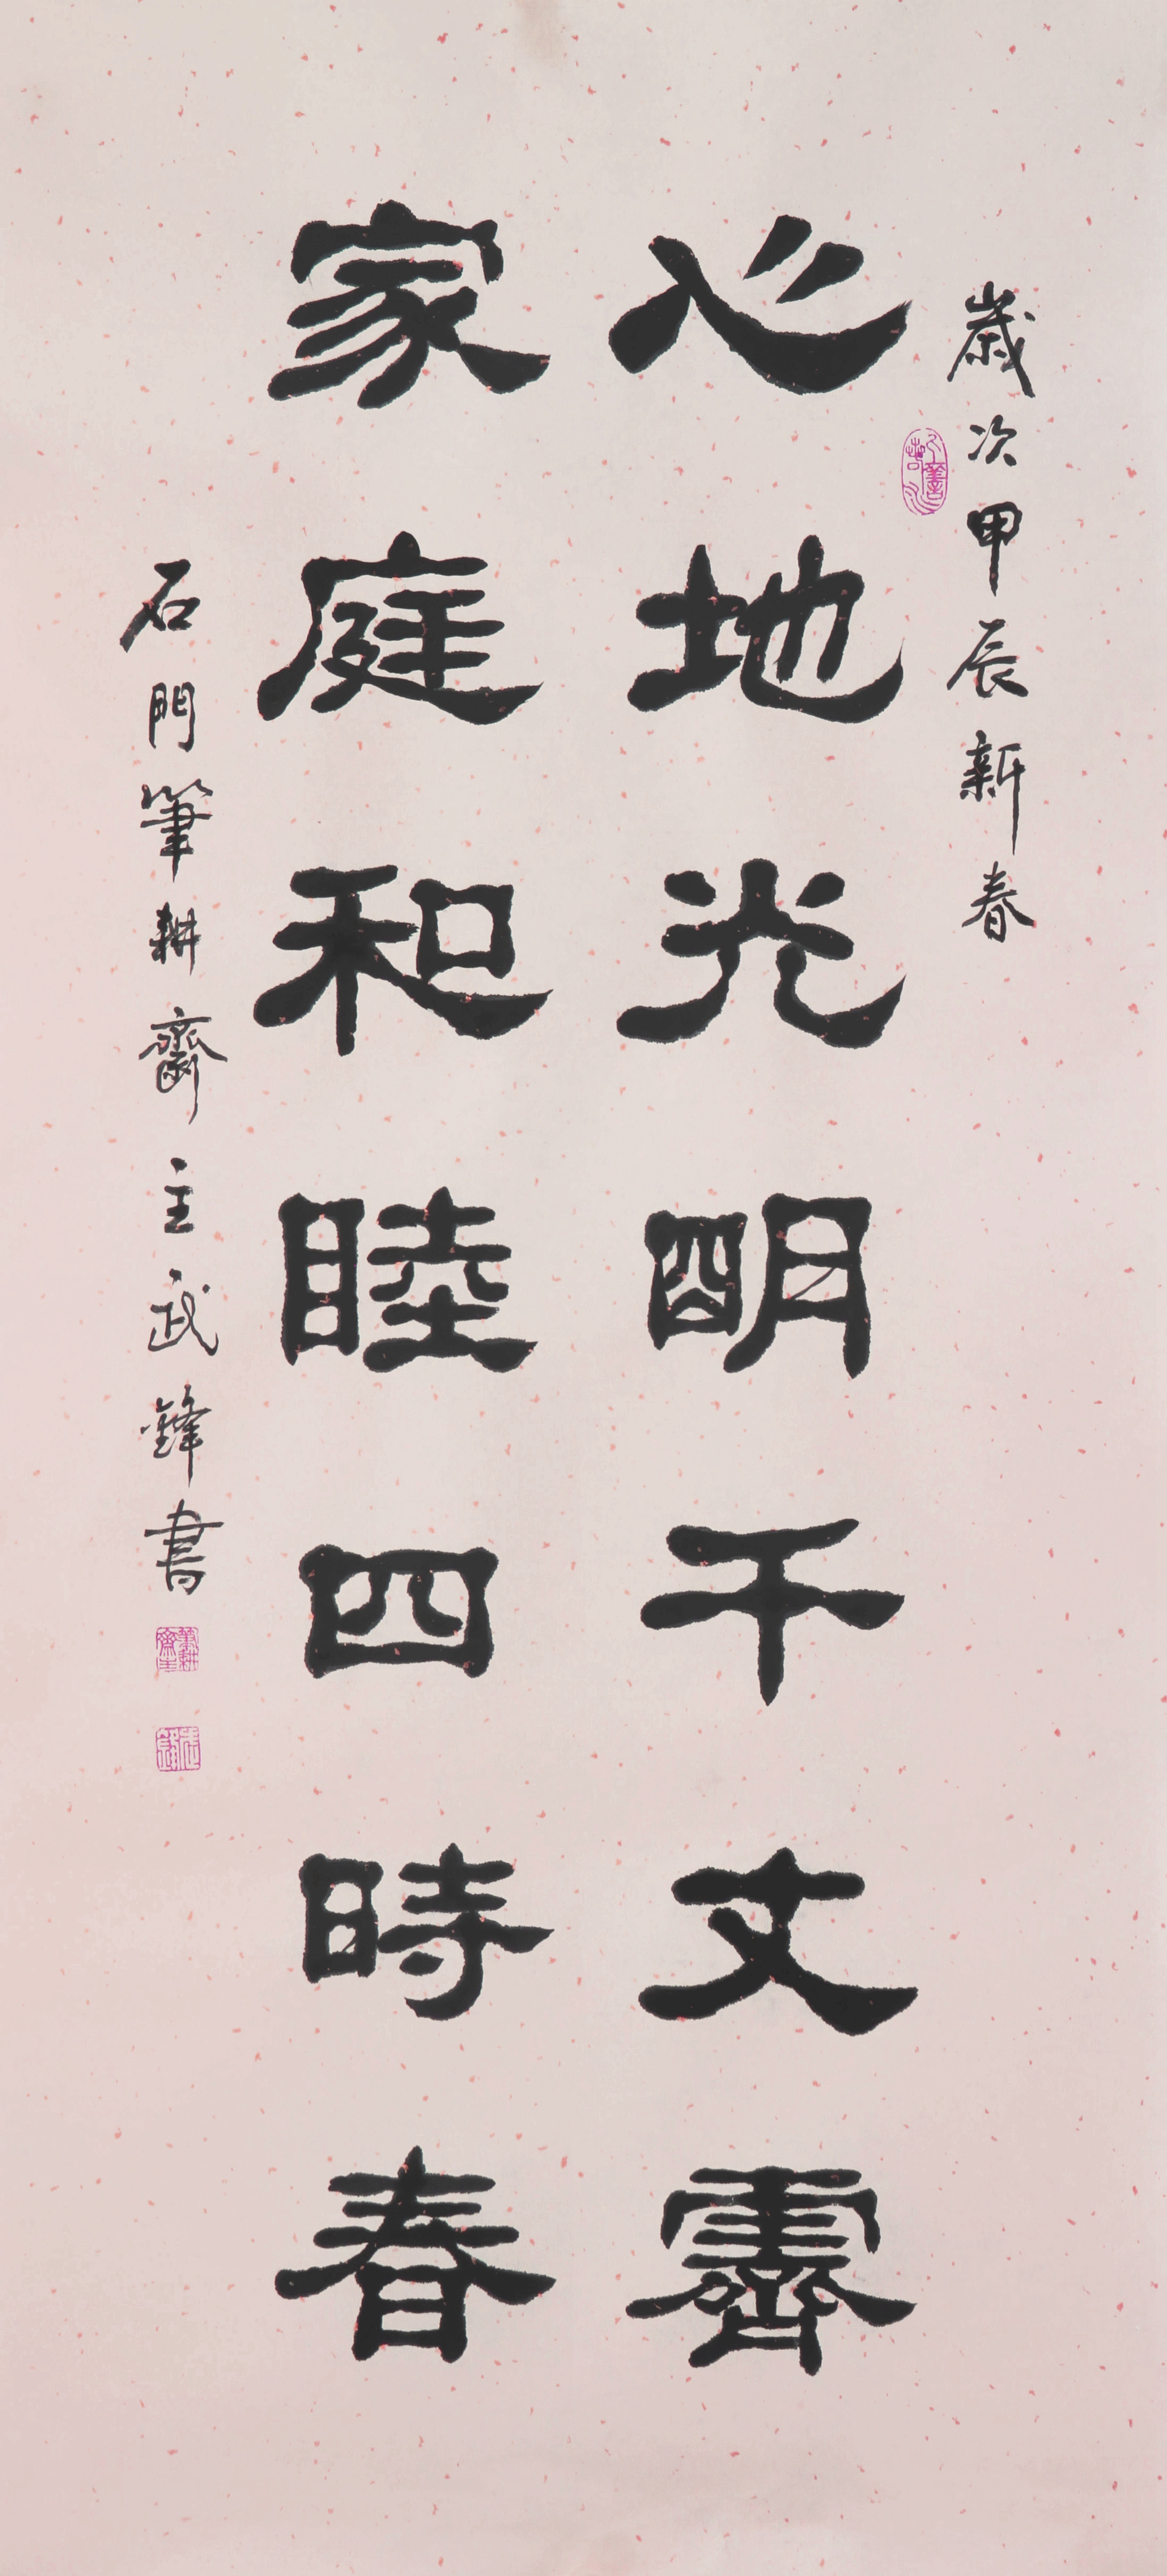 歲次甲辰新春
心地光明千丈霽
家庭和睦四時春
石門筆耕齋主武鋒書